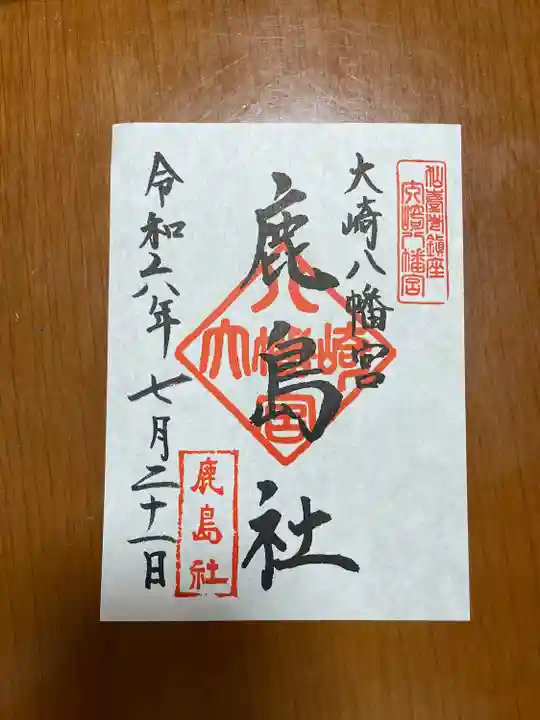 仙臺岩鎮座
大崎八幡宮
大崎八幡宮
鹿島社
八
大幡崎
宮
鹿島社
令和六年七月二十一日